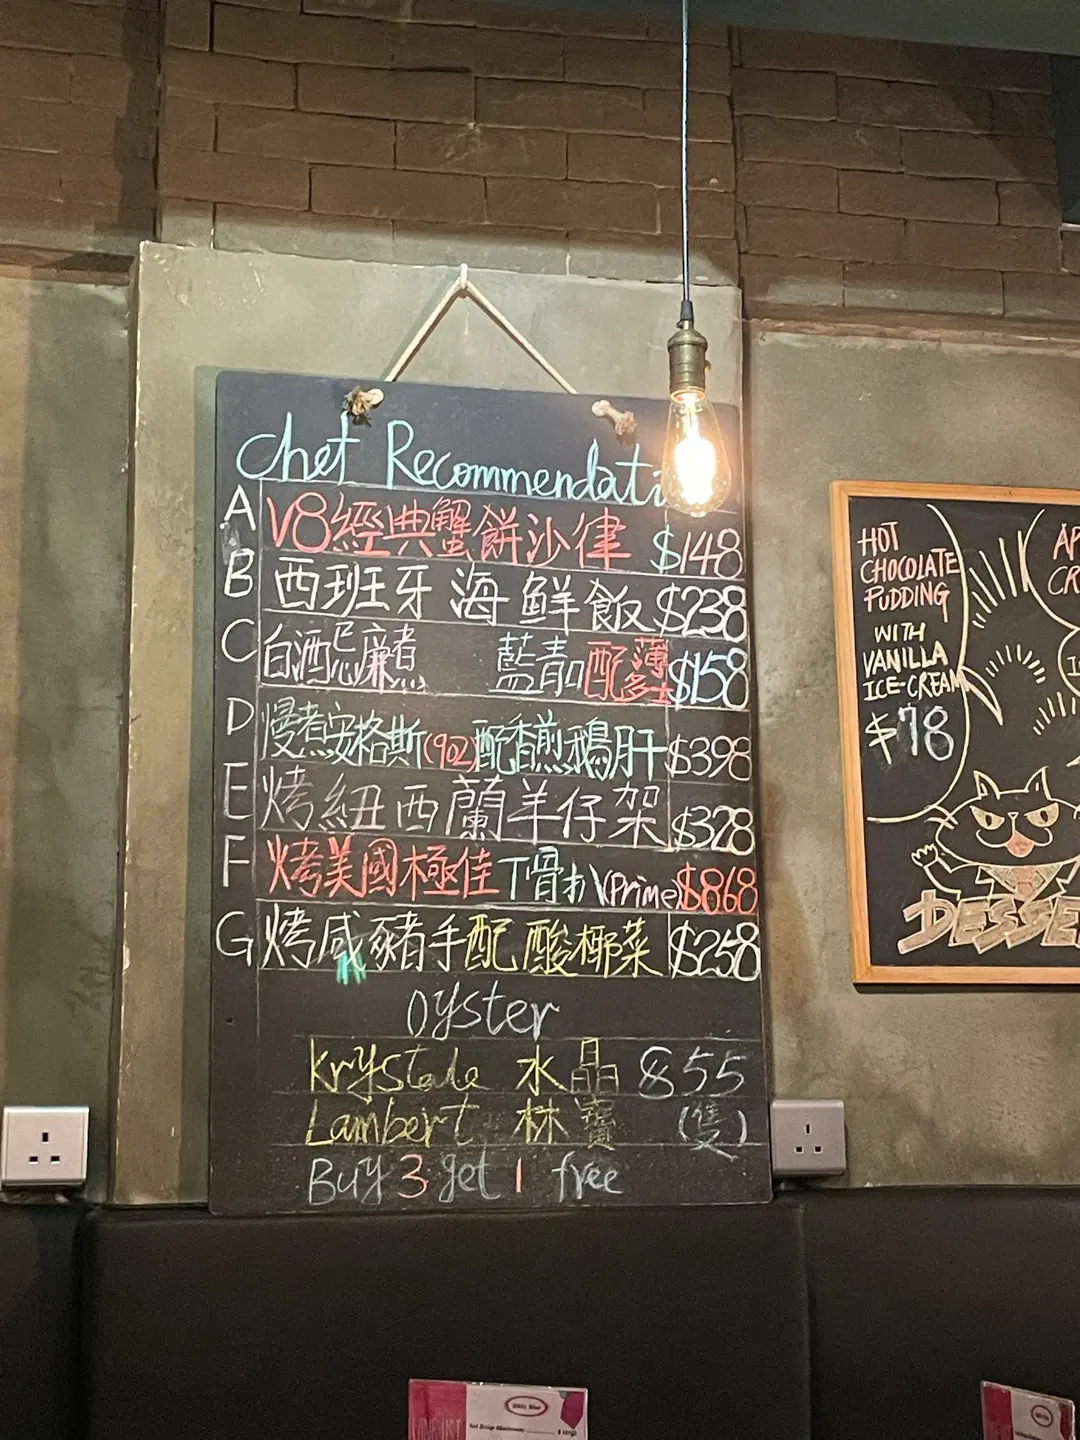 Chef Recommendati
A V8經典蟹餅沙律 $148
B 西班牙海鮮飯 $238
C 白酒忌廉煮 藍青口配薄多士 $158
D 慢煮安格斯(9oz)配香煎鵝肝 $398
E 烤紐西蘭羊仔架 $328
F 烤美國極佳T骨扒(Prime) $868
G 烤咸豬手配酸椰菜 $258
Oyster
Krystale 水晶 $55
Lambert 林寶 (隻)
Buy 3 get 1 free
HOT
CHOCOLATE
PUDDING
WITH
VANILLA
ICE-CREAM
$78
AP
CR
DESSE
WINE LIST